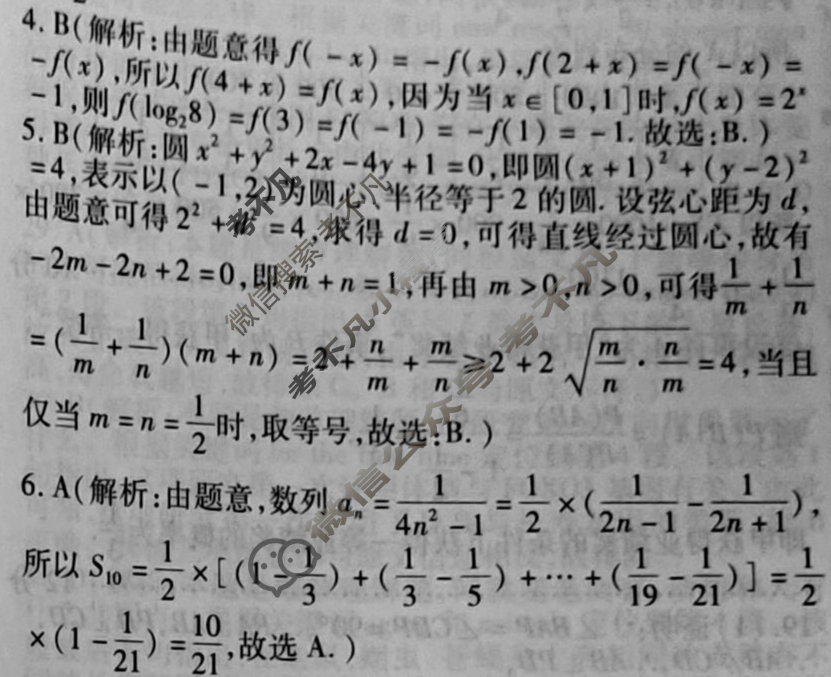 4. B(解析:由题意得 f( - x) = - f(x), f(2 + x) = f( - x) =
- f(x),所以 f(4 + x) = f(x),因为当 x ∈ [0,1]时, f(x) = 2^x
- 1,则 f(log₂8) = f(3) = f( - 1) = - f(1) = - 1. 故选:B. )
5. B(解析:圆 x² + y² + 2x - 4y + 1 = 0,即圆(x + 1)² + (y - 2)²
= 4,表示以( - 1,2)为圆心、半径等于 2 的圆. 设弦心距为 d,
由题意可得 2² + d² = 4,求得 d = 0,可得直线经过圆心,故有
- 2m - 2n + 2 = 0,即 m + n = 1,再由 m > 0,n > 0,可得 1/m + 1/n
= (1/m + 1/n)(m + n) = 2 + n/m + m/n ≥ 2 + 2√(m/n · n/m) = 4,当且
仅当 m = n = 1/2 时,取等号,故选:B. )
6. A(解析:由题意,数列 aₙ = 1/(4n² - 1) = 1/2 × (1/(2n - 1) - 1/(2n + 1)),
所以 S₁₀ = 1/2 × [(1 - 1/3) + (1/3 - 1/5) + ⋯ + (1/19 - 1/21)] = 1/2
× (1 - 1/21) = 10/21,故选 A. )
考不凡
微信搜索考不凡
考不凡小
微信公众号考不凡